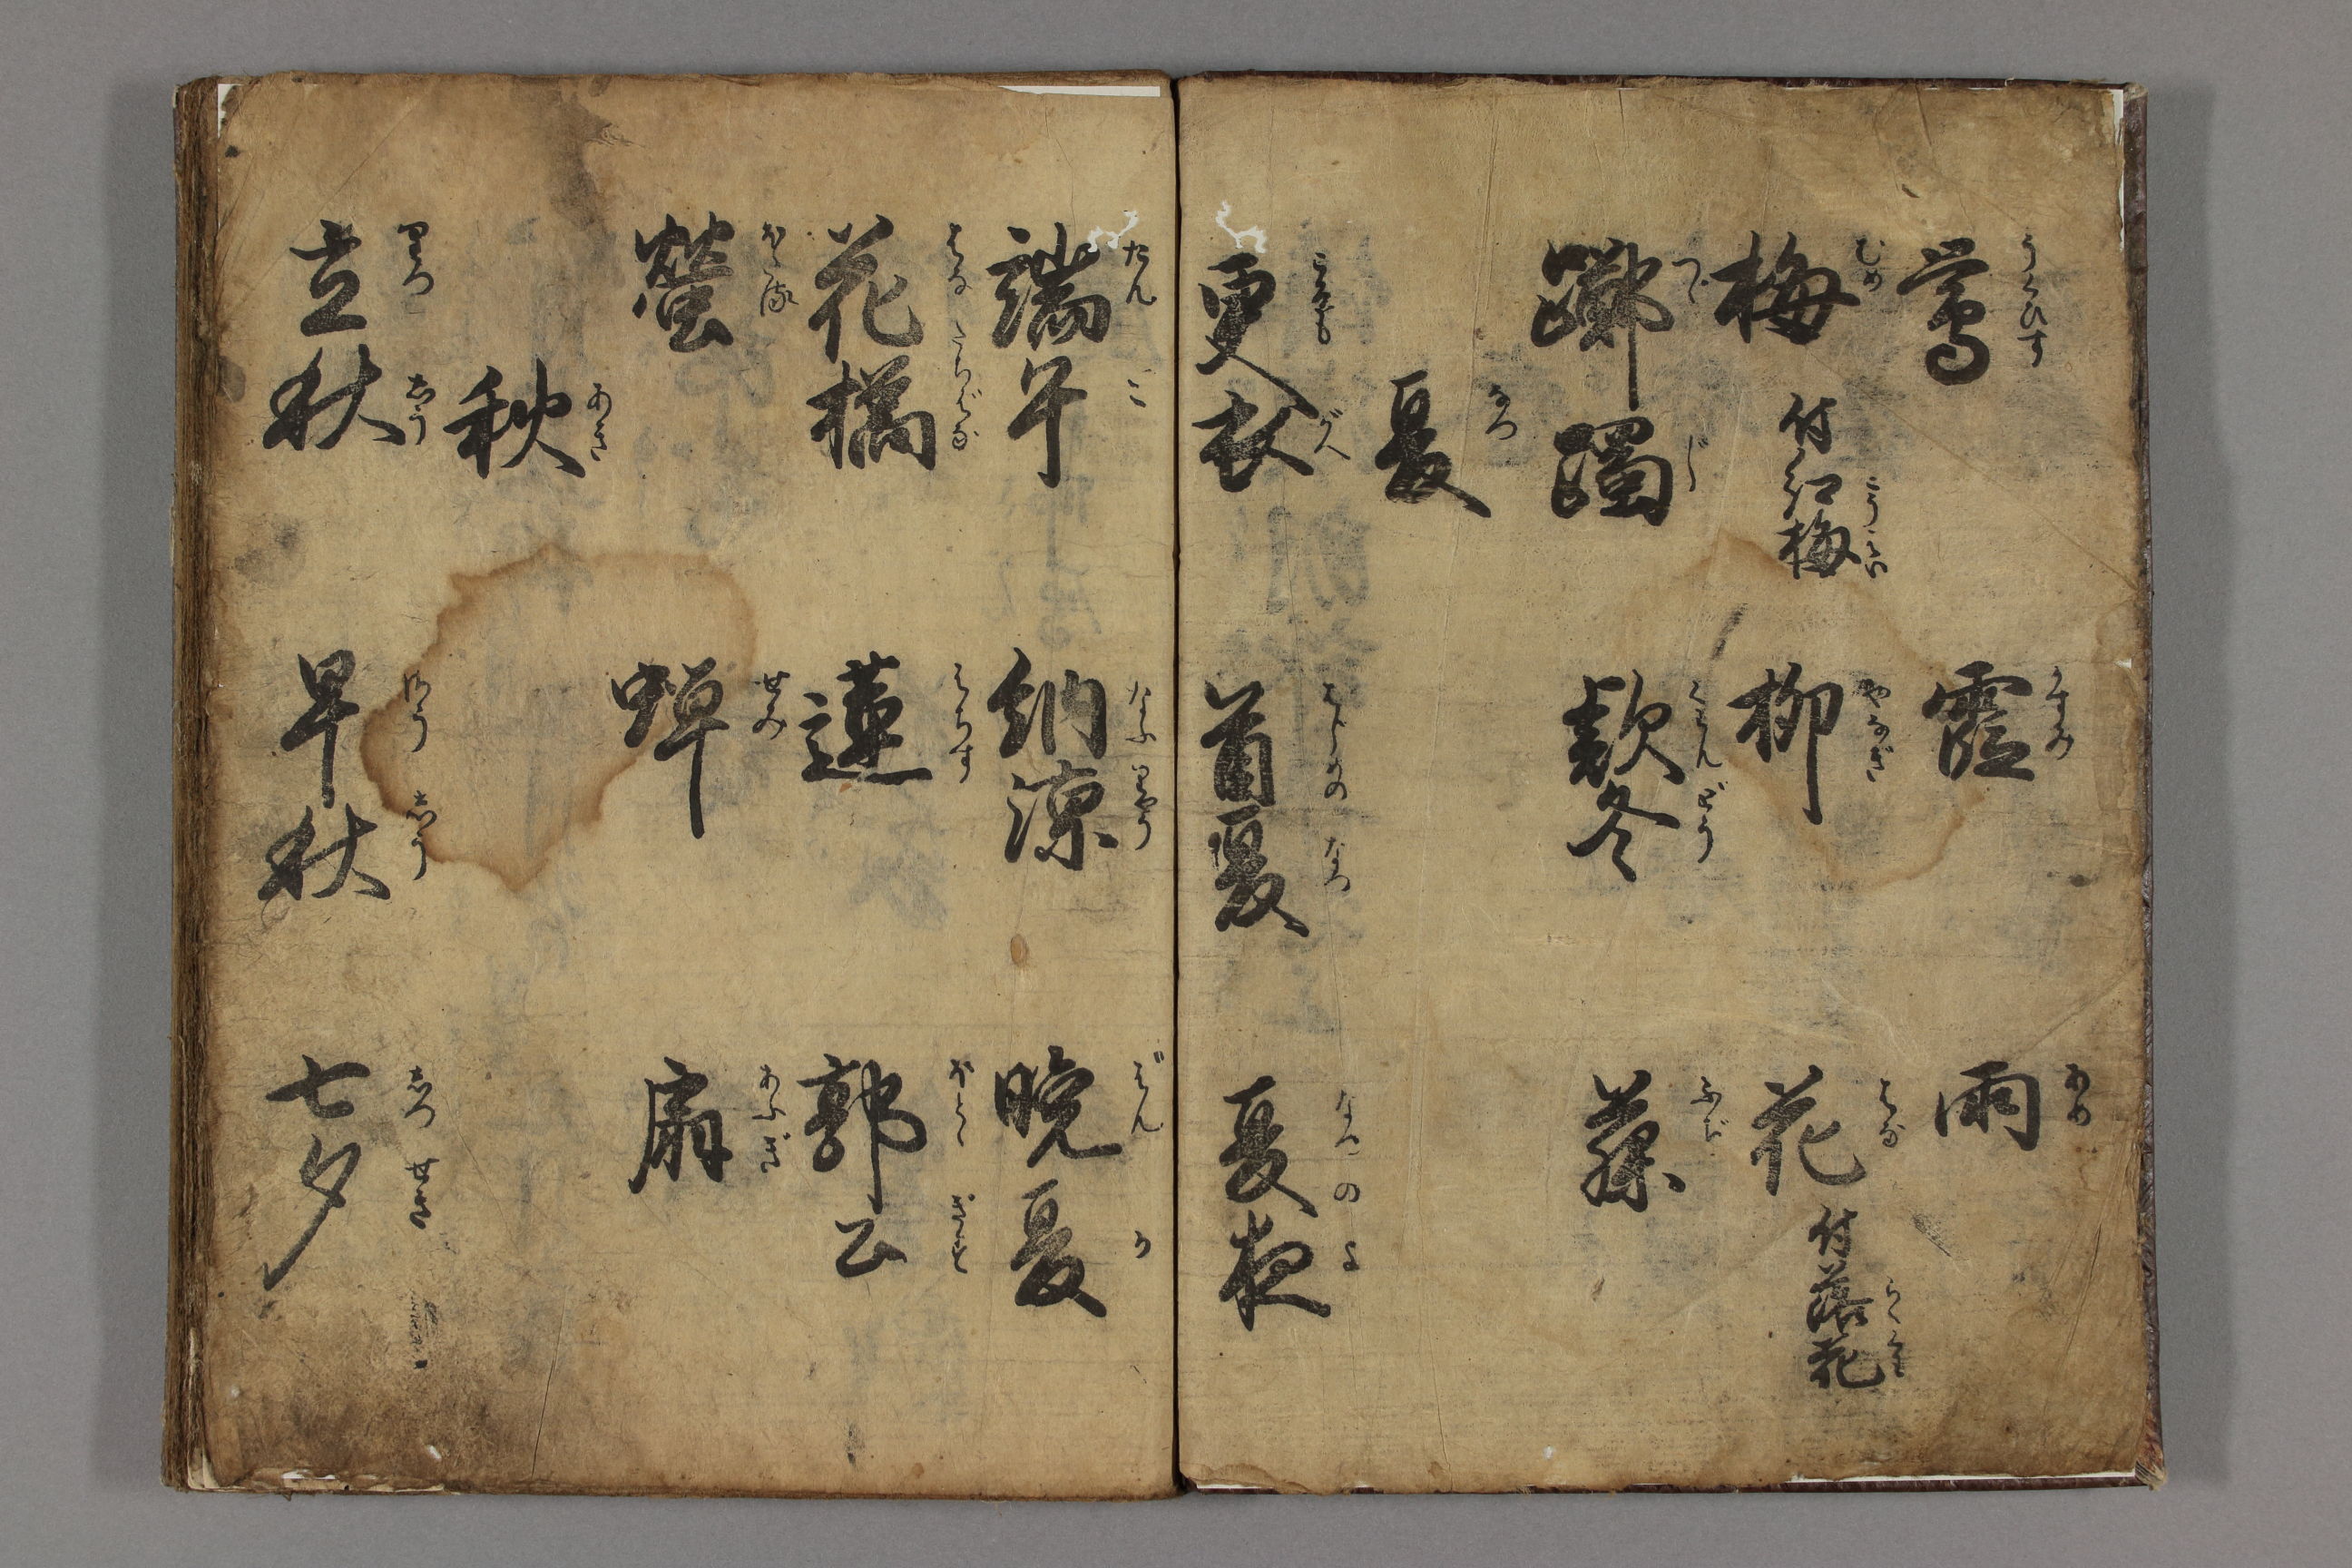 鶯 霞 雨
うくひす かすみ あめ
梅 付紅梅 柳 花 付落花
むめ こうばい やなぎ はな らくくわ
躑躅 款冬 藤
つゝじ くわんどう ふぢ
夏
なつ
更衣 首夏 夏夜
ころもがへ はじめのなつ なつのよ
端午 納涼 晩夏
たんこ なふりやう ばんか
花橘 蓮 郭公
はなたちばな はちす ほとゝぎす
螢 蝉 扇
ほたる せみ あふぎ
秋
あき
立秋 早秋 七夕
りつしう さうしう しつせき